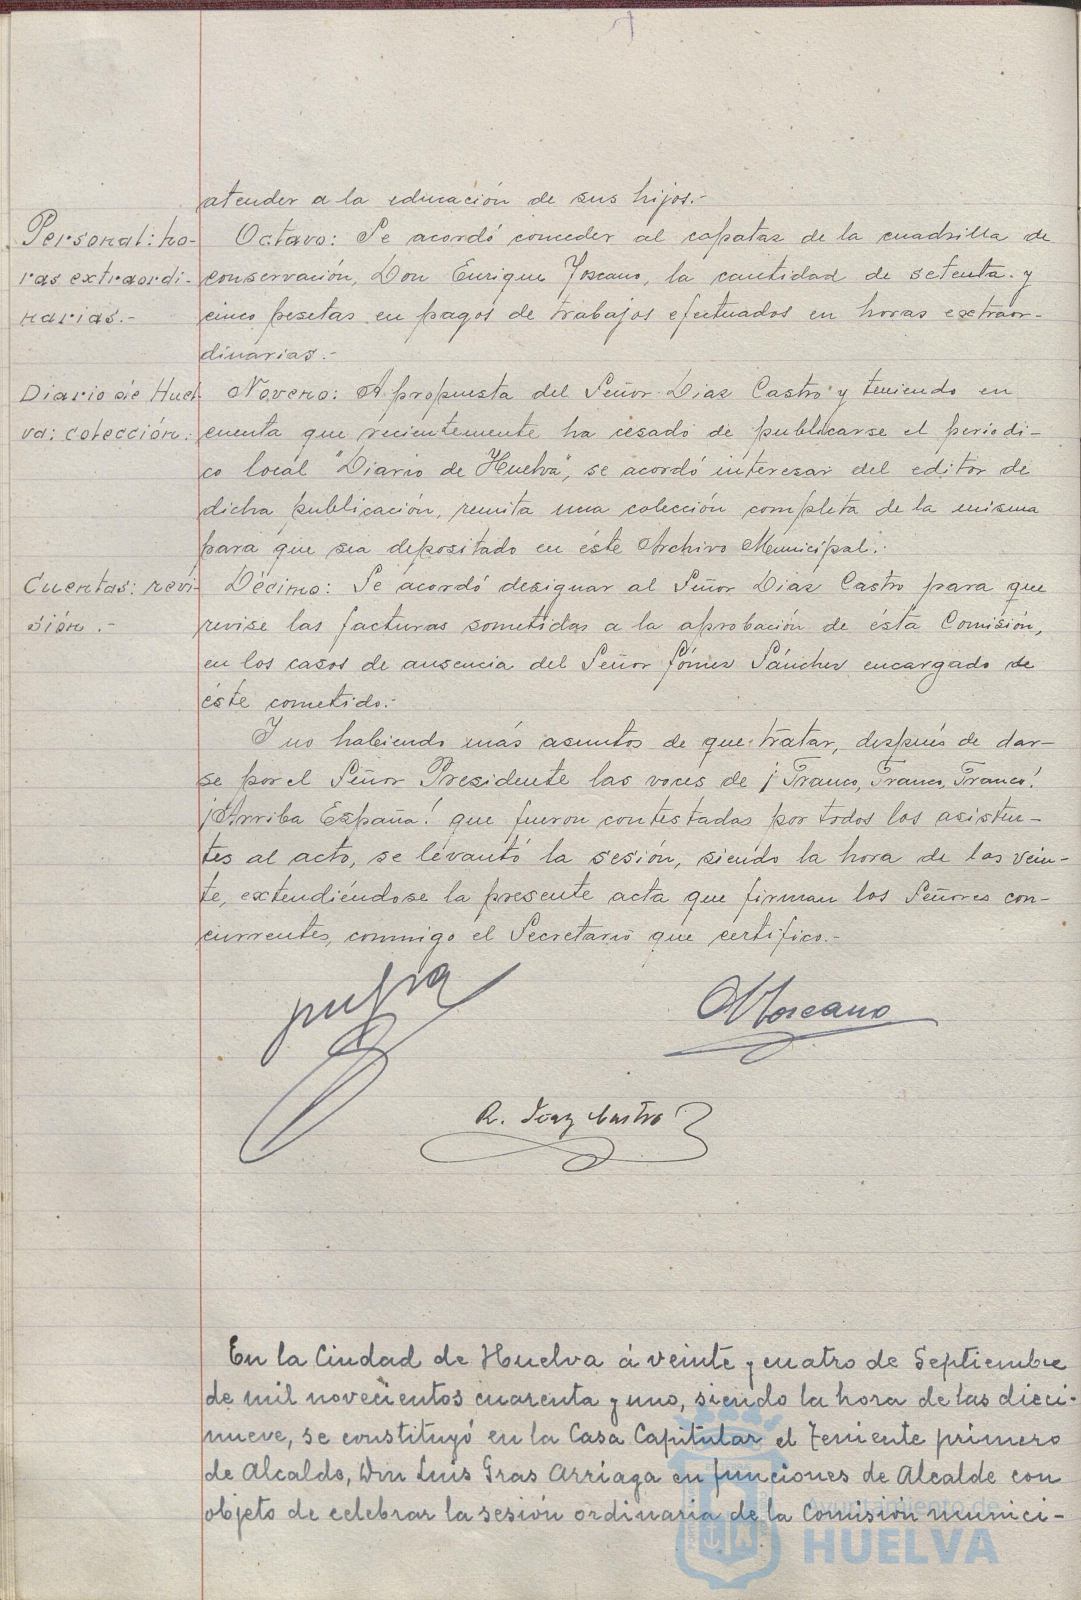 atender a la educación de sus hijos.-
Personal: ho-
ras extraordi-
narias.-
Octavo: Se acordó conceder al capataz de la cuadrilla de
conservación, Don Enrique Toscano, la cantidad de setenta y
cinco pesetas en pagos de trabajos efectuados en horas extraor-
dinarias.-
Diario de Huel-
va: colección.
Noveno: A propuesta del Señor Diaz Castro y teniendo en
cuenta que recientemente ha cesado de publicarse el periodi-
co local "Diario de Huelva", se acordó interesar del editor de
dicha publicación, remita una colección completa de la misma
para que sea depositado en éste Archivo Municipal.-
Cuentas: revi-
sión.-
Décimo: Se acordó designar al Señor Diaz Castro para que
revise las facturas sometidas a la aprobación de ésta Comisión,
en los casos de ausencia del Señor Gómez Sánchez encargado de
éste cometido.-
Y no habiendo más asuntos de que tratar, después de dar-
se por el Señor Presidente las voces de ¡Franco, Franco, Franco!
¡Arriba España! que fueron contestadas por todos los asisten-
tes al acto, se levantó la sesión, siendo la hora de las vein-
te, extendiéndose la presente acta que firman los Señores con-
currentes, conmigo el Secretario que certifico.-
Toscano
R. Diaz Castro
En la Ciudad de Huelva á veinte y cuatro de Septiembre
de mil novecientos cuarenta y uno, siendo la hora de las dieci-
nueve, se constituyó en la Casa Capitular el Teniente primero
de Alcalde, Don Luis Gras Arriaga en funciones de Alcalde con
objeto de celebrar la sesión ordinaria de la Comisión munici-
Ayuntamiento de
HUELVA